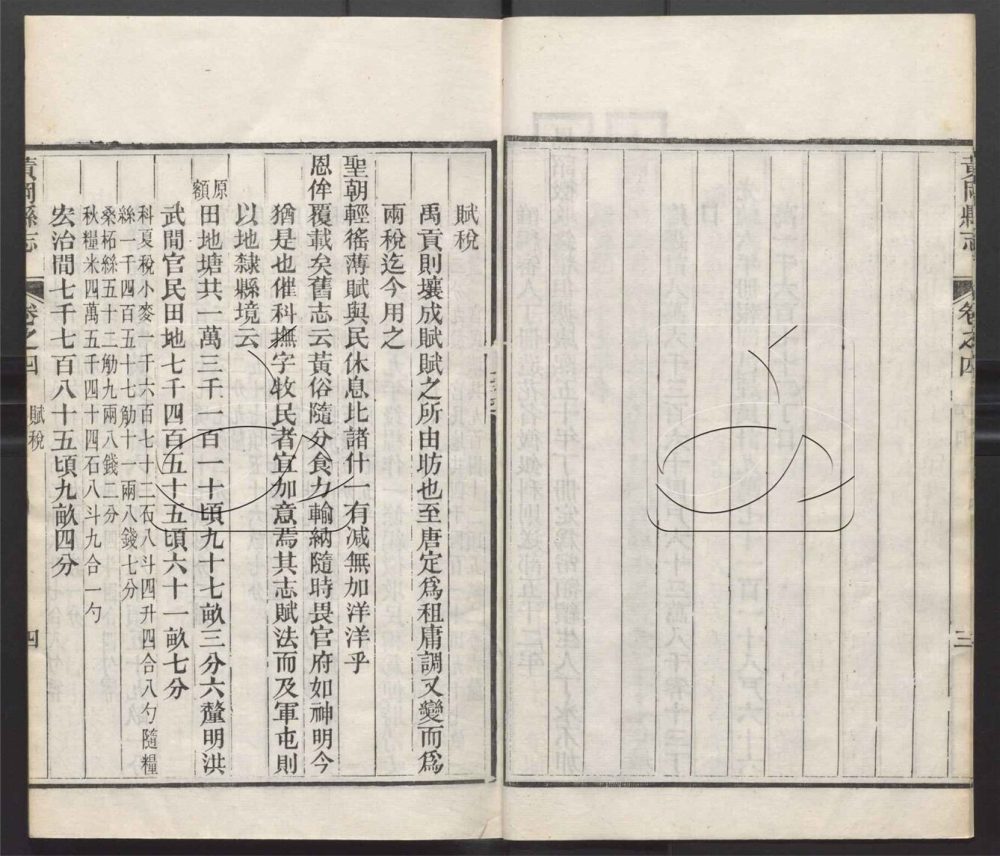 黃岡縣志
卷之四
三
賦稅
禹貢則壤成賦賦之所由昉也至唐定爲租庸調又變而爲
兩稅迄今用之
聖朝輕徭薄賦與民休息比諸什一有減無加洋洋乎
恩侔覆載矣舊志云黃俗隨分食力輸納隨時畏官府如神明今
猶是也催科撫字牧民者宜加意焉其志賦法而及軍屯則
以地隸縣境云
原額
田地塘共一萬三千一百一十頃九十七畝三分六釐明洪
武間官民田地七千四百五十五頃六十一畝七分
科夏稅小麥千六百七十二石八斗四升四合八勺隨糧
絲一千四百五十七觔十一兩八錢七分
桑柘絲五十二觔九兩八錢二分
秋糧米四萬五千四十四石八斗九合一勺
宏治間七千七百八十五頃九畝四分
黃岡縣志
卷之四
賦稅
四